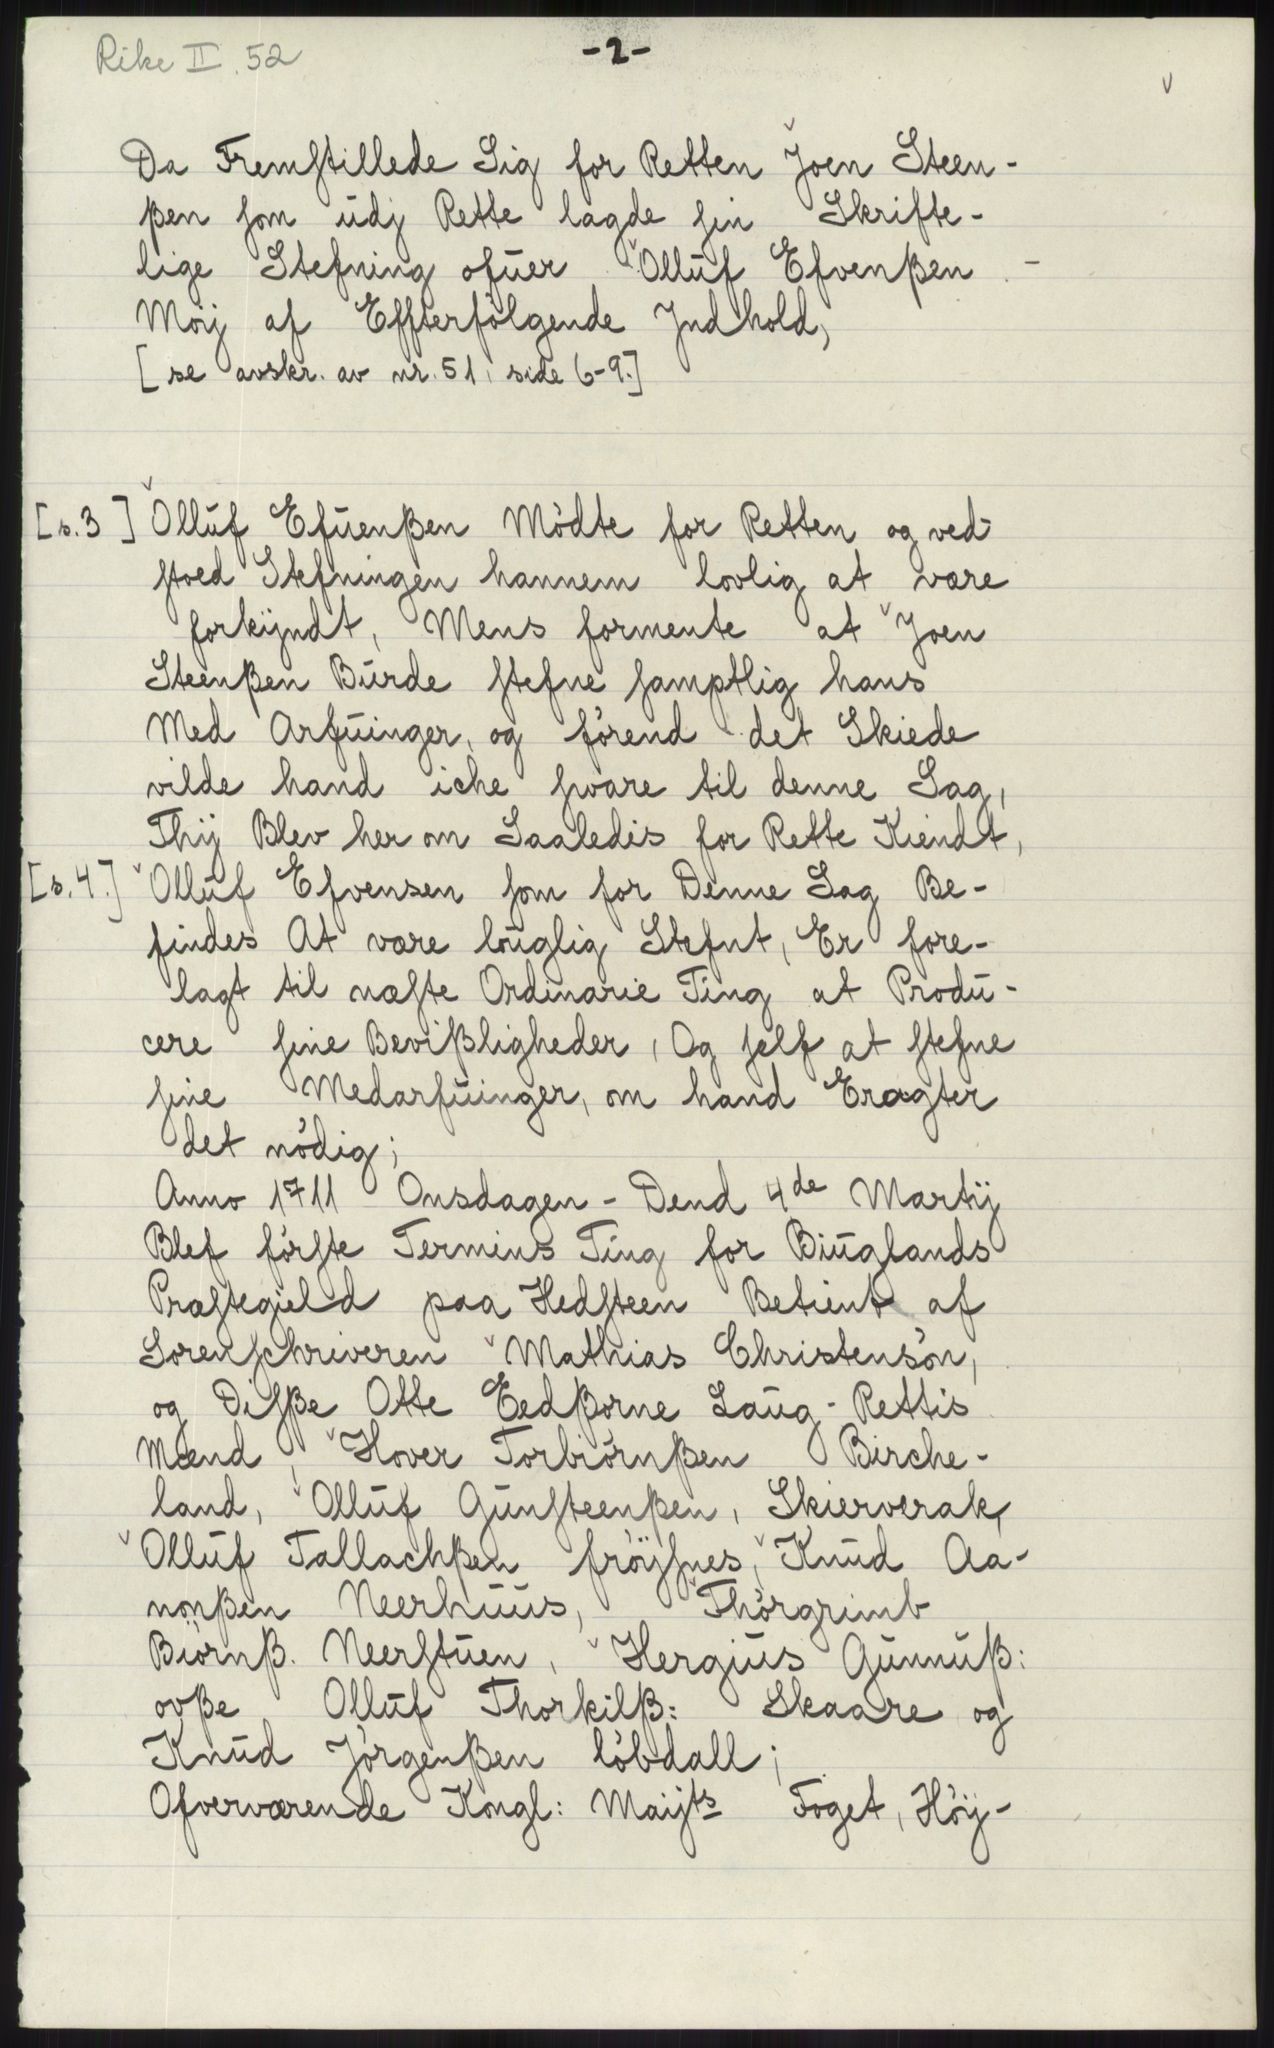 Rike II. 52
-2-
Da Fremstillede Sig for Retten Joen Steen-
ßen som udj Rette lagde sin Skrifte-
lige Stefning ofuer Olluf Efvenßen -
Moij af Effterfölgende Jndhold,
[se avskr. av nr. 51, side 6-9.]
[s.3] Olluf Efuenßen Mödte for Retten og ved-
stoed Stefningen hannem lovlig at være
forkijndt, Mens formente at Joen
Steenßen Burde stefne samptlig hans
Med Arfuinger, og förend det Skiede
vilde hand iche svare til denne Sag,
Thij Blev her om Saaledis for Rette Kiendt,
[s.4.] Olluf Efvensen som for Denne Sag Be-
findes At være louglig Stefnt, Er fore-
lagt til næste Ordinarie Ting at Produ-
cere sine Bevißligheder, Og self at stefne
sine Medarfuinger, om hand Eragter
det nödig;
Anno 1711 Onsdagen - Dend 4de Martij
Blef förste Termins Ting for Biuglands
Præstegield paa Hedsteen Betient af
Sorenschriveren Mathias Christensön,
og Disße Otte Eedßorne Laug-Rettis
Mænd, Hover Torbiörnßen Birche-
land, Olluf Gunsteenßen, Skierverak,
Olluf Tallachßen fröysnes, Knud Aa-
nonßen Neerhuus, Thörgrimb
Biörnß. Neerstuen, Hergius Gunnuß:
ovße Olluf Thorkilß: Skaare og
Knud Jörgenßen löbdall;
Ofverværende Kongl: Maijts Foget, Höy-